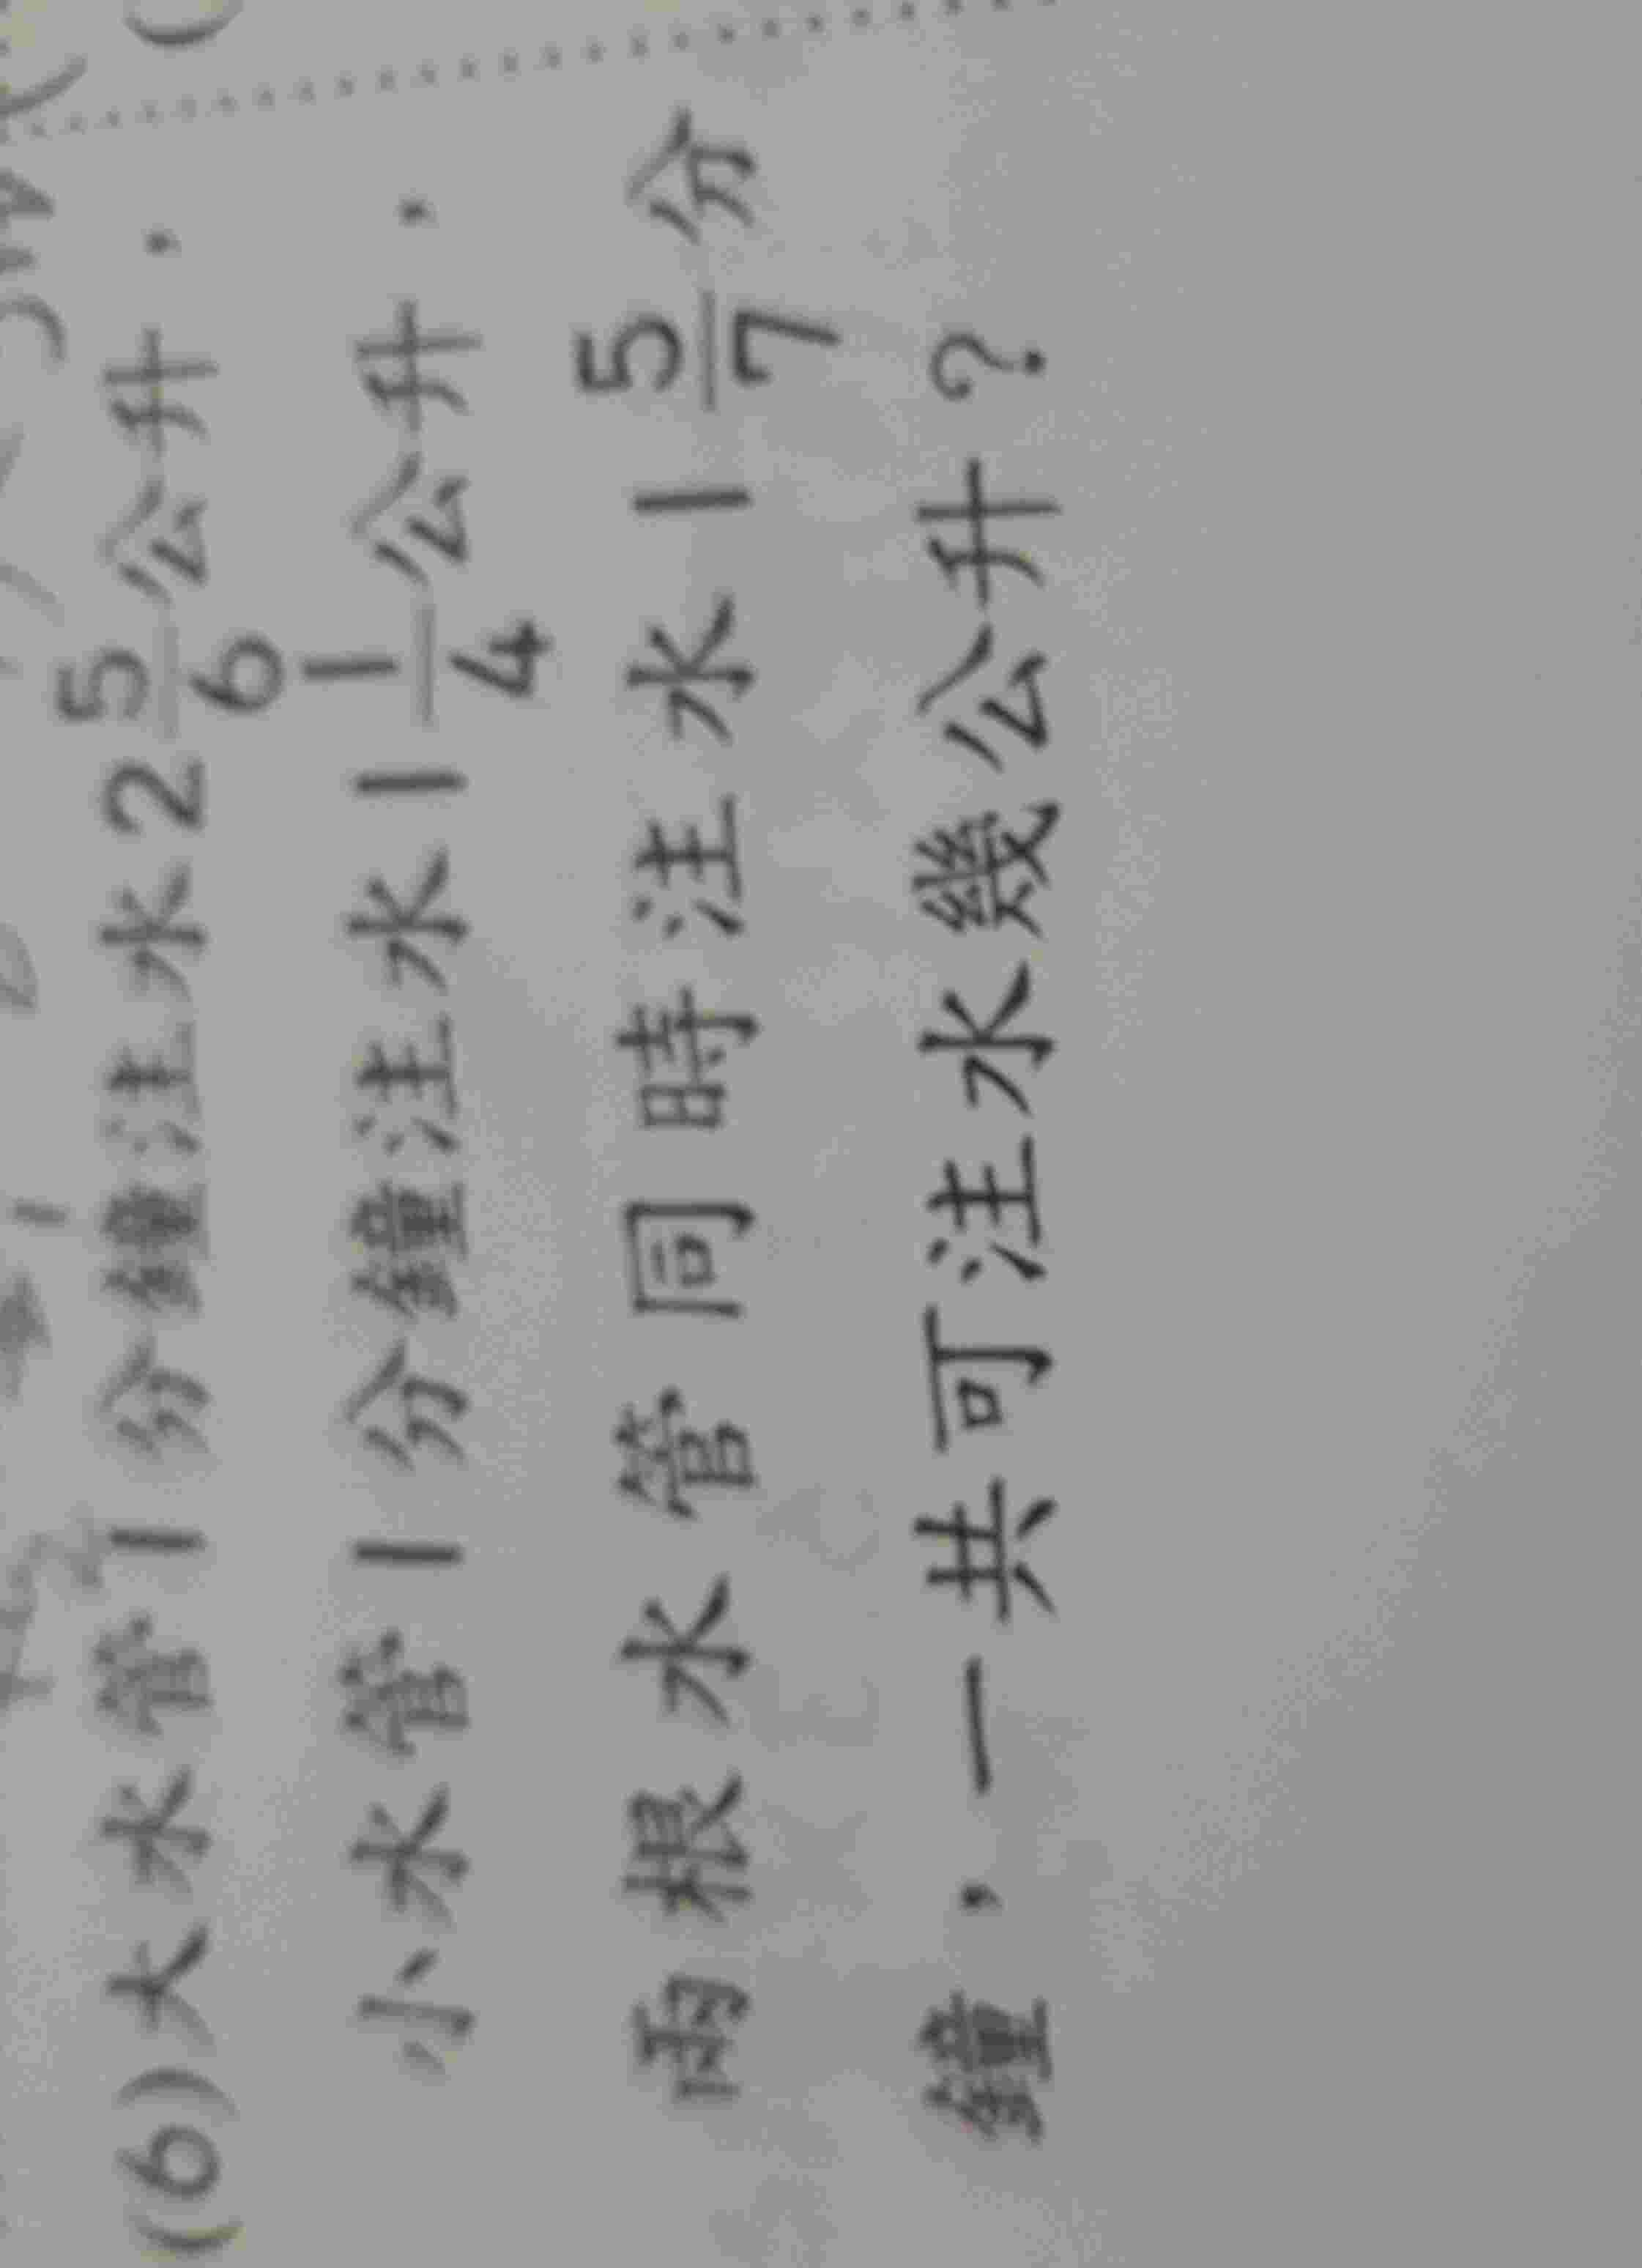 (6)大水管1分鐘注水2 5/6公升，
小水管1分鐘注水1 1/4公升，
兩根水管同時注水1 5/7分
鐘，一共可注水幾公升？